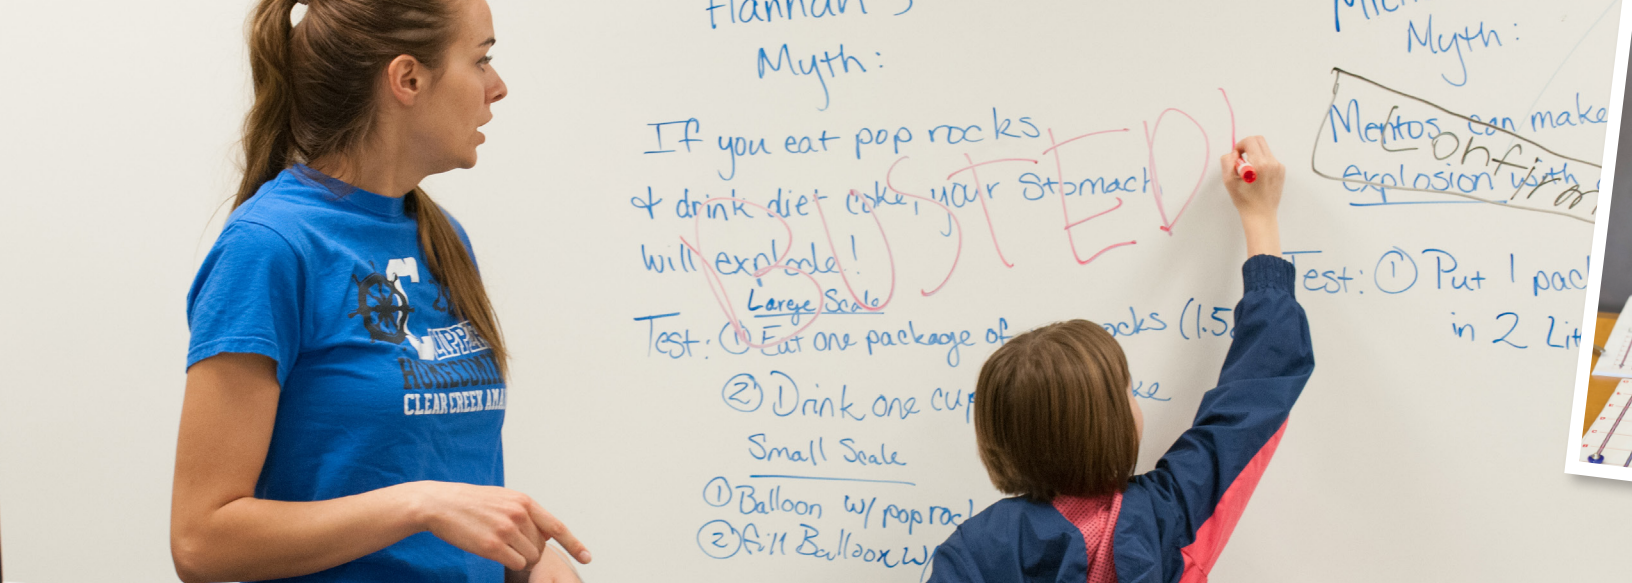 Hannah's
Myth:
If you eat pop rocks
& drink diet coke, your stomach
will explode!
BUSTED!
Large Scale
Test: ① Eat one package of rocks (1.5
② Drink one cup
Small Scale
① Balloon w/ pop rock
② fill Balloon w/
Myth:
Mentos can make
explosion with
Confirm
Test: ① Put 1 pac
in 2 Lit
CLIPPER
HOMECOMING
CLEAR CREEK AMA